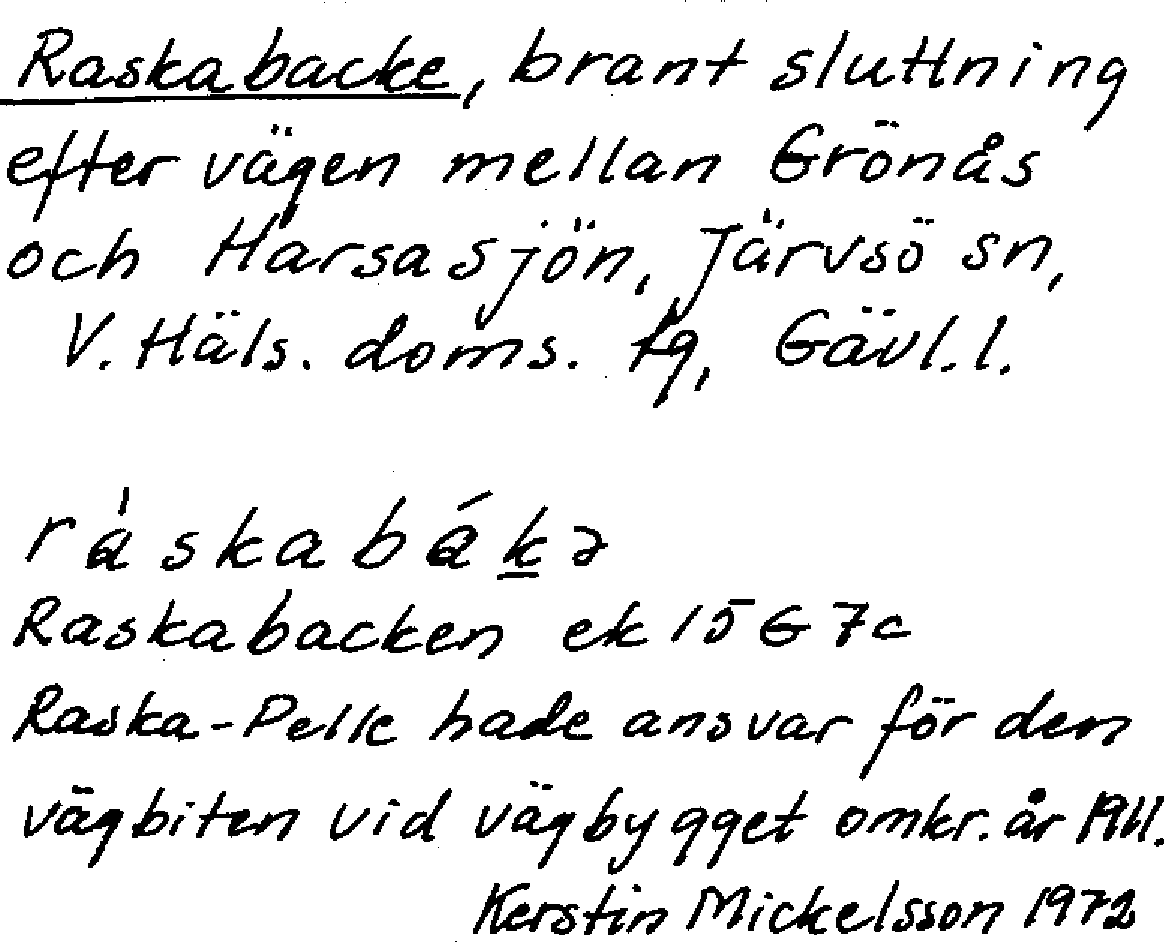 Raskabacke, brant sluttning
efter vägen mellan Grönås
och Harsasjön, Järvsö sn,
V. Häls. doms. tg, Gävl. l.
ràskabák̲ə
Raskabacken ek 15 G 7c
Raska-Pelle hade ansvar för den
vägbiten vid vägbygget omkr. år 1911.
Kerstin Mickelsson 1972